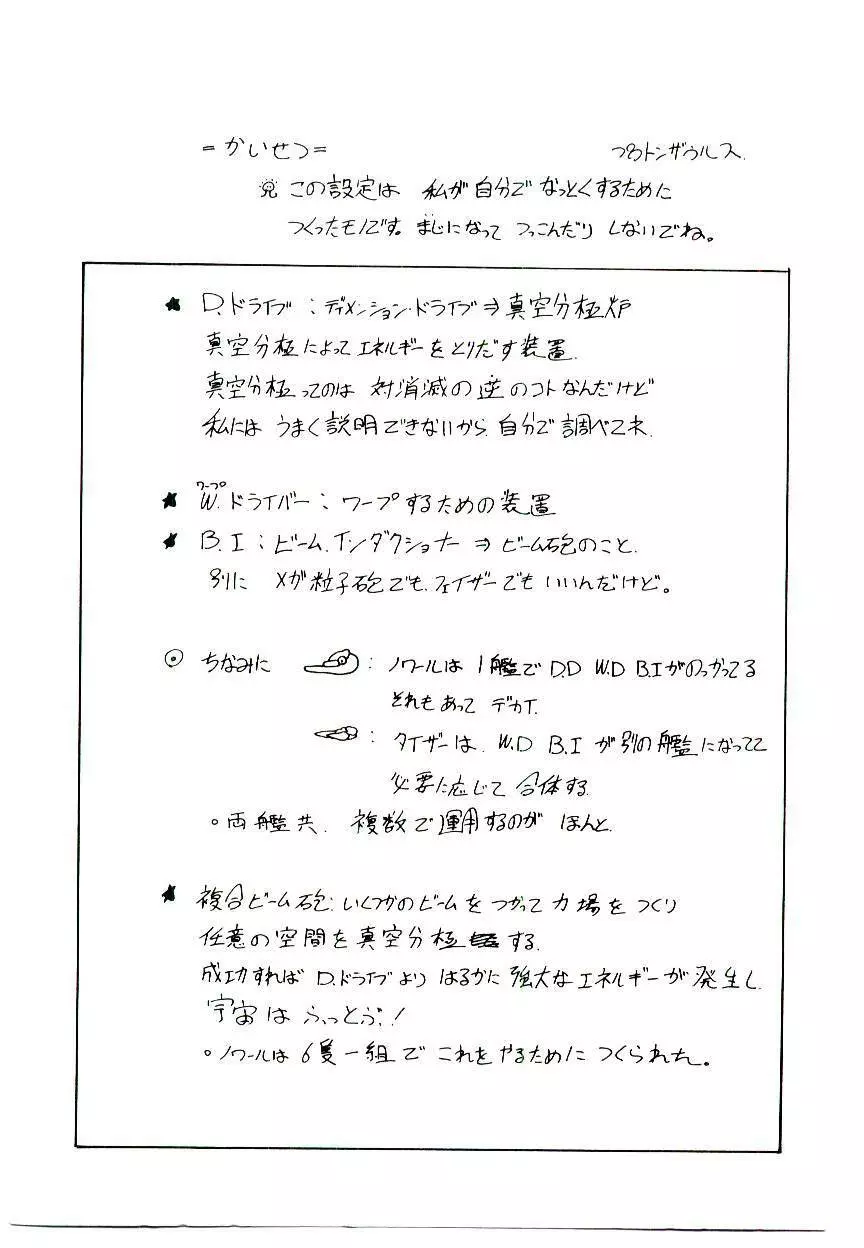 =かいせつ=
つるトンザウルス.
※ この設定は 私が自分で なっとくするために
つくったモノです。まじになって つっこんだり しないでね。
★ D.ドライブ : ディメンション・ドライブ⇒真空分極炉
真空分極によってエネルギーをとりだす装置.
真空分極ってのは 対消滅の逆のコトなんだけど
私には うまく説明できないから 自分で調べてネ.
ワープ
★ W.ドライバー : ワープするための装置
★ B.I : ビーム.インダクショナー ⇒ ビーム砲のこと.
別に メガ粒子砲でも.フェイザーでも いいんだけど。
⊙ ちなみに : ノワールは 1艦で D.D W.D B.Iがのっかってる
それもあって デカイ.
: タイザーは. W.D B.I が別の艦になってて
必要に応じて 合体する.
○両艦共. 複数で運用するのが ほんと.
★ 複合ビーム砲 : いくつかのビームをつかって力場をつくり
任意の空間を真空分極する.
成功すれば D.ドライブより はるかに強大なエネルギーが発生し.
宇宙は ふっとぶ!
○ノワールは 6隻一組で これをやるために つくられた。